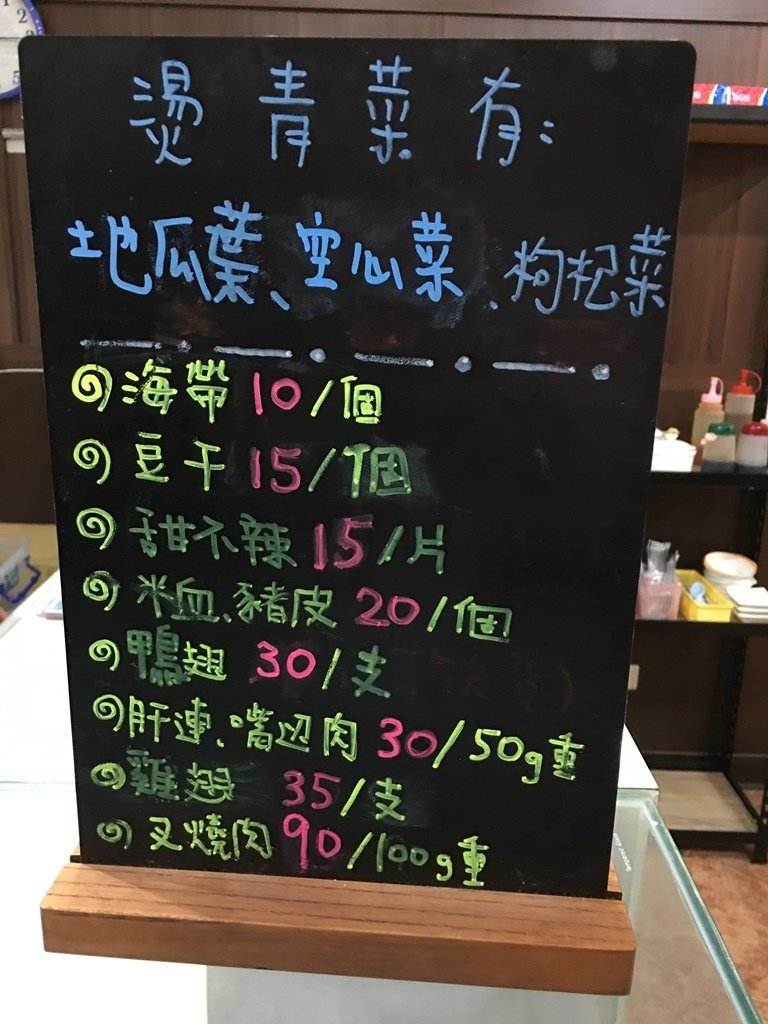 燙青菜有:
地瓜葉、空心菜、枸杞菜
海帶 10/個
豆干 15/個
甜不辣 15/片
米血、豬皮 20/個
鴨翅 30/支
肝連、嘴边肉 30/50g重
雞翅 35/支
叉燒肉 90/100g重